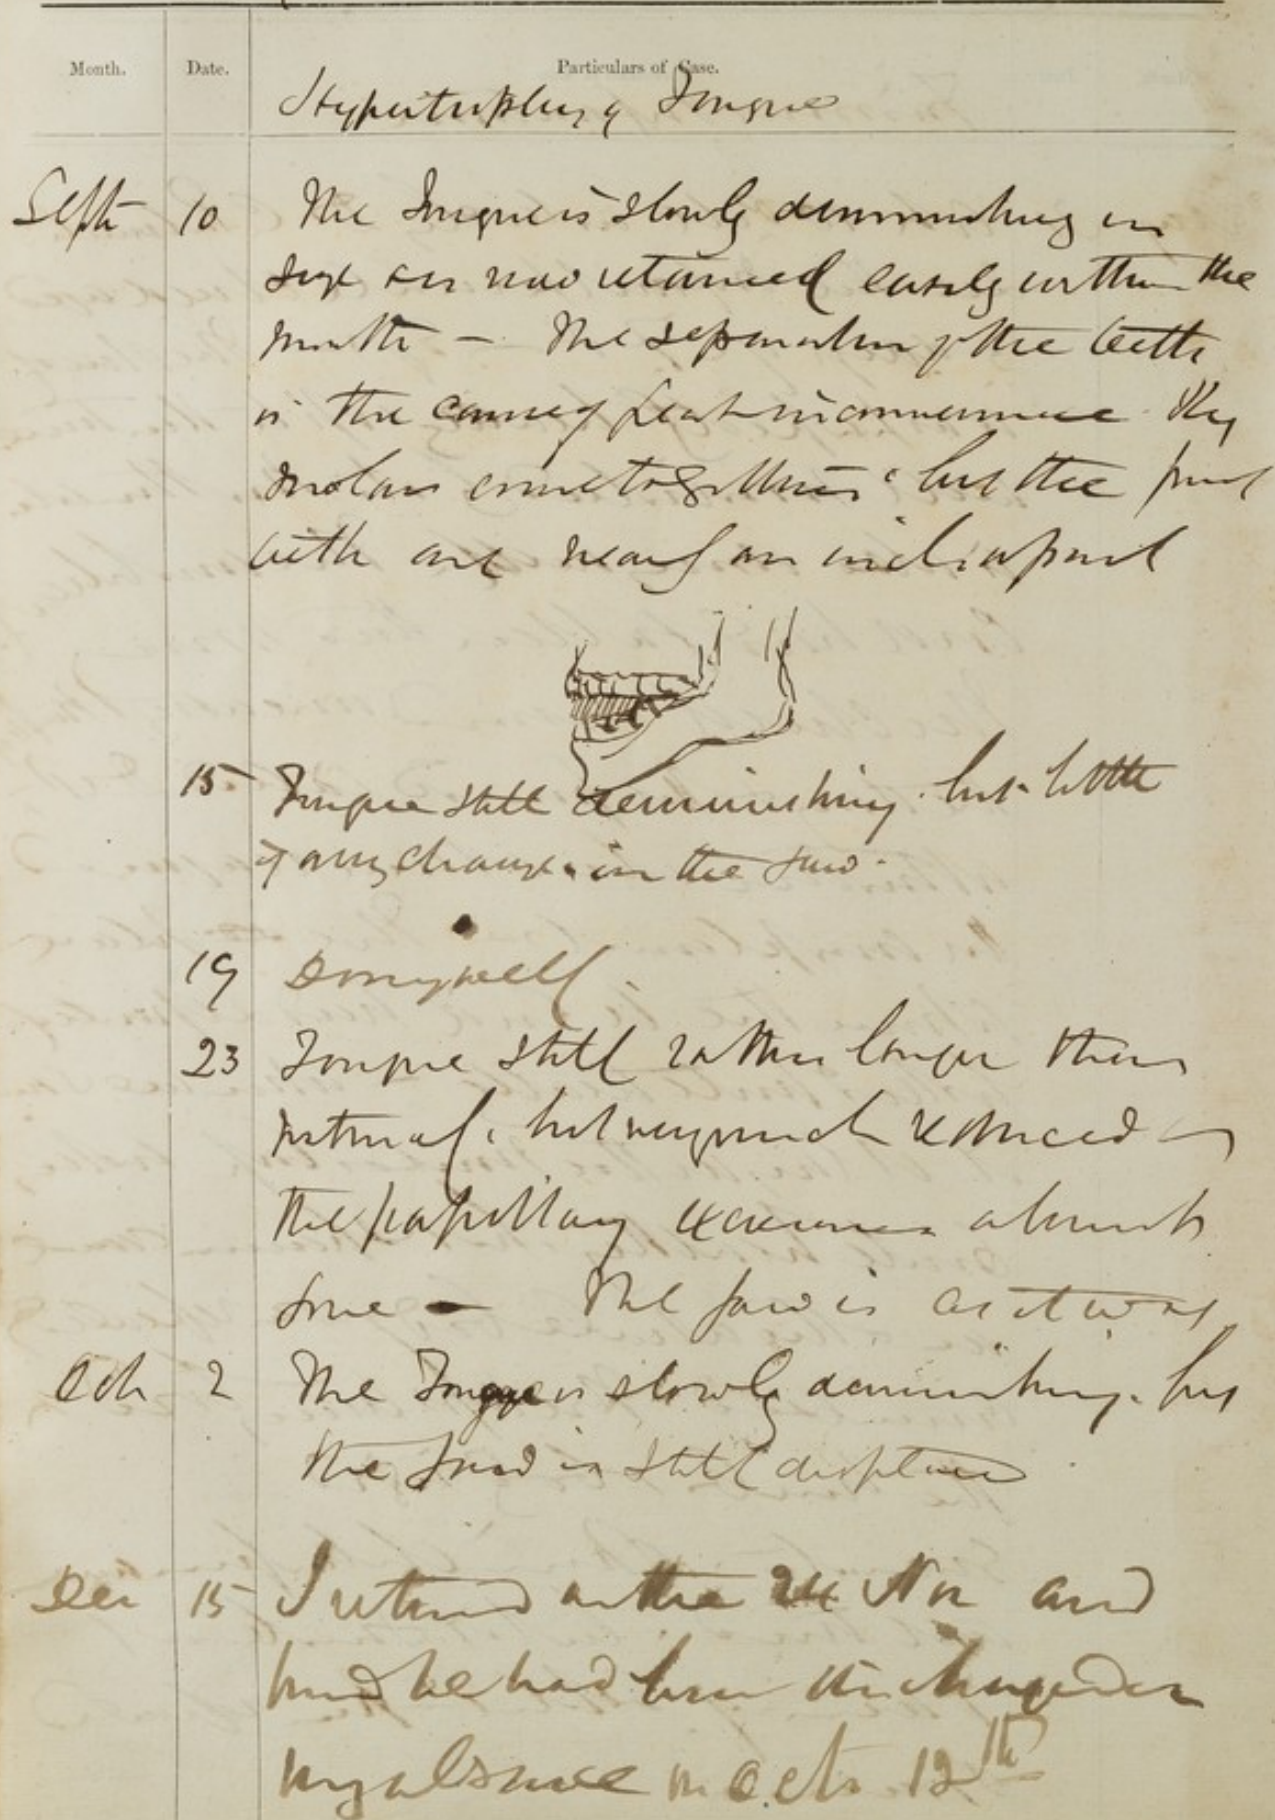 Month. Date. Particulars of Case.
Hypertrophy of Tongue
Sept 10 The Tongue is slowly diminishing in
size & is now retained easily within the
mouth – The separation of the teeth
is the cause of great inconvenience The
molars come together but the front
teeth are nearly an inch apart
15 Tongue still diminishing but little
if any change in the jaw.
19 Doing well.
23 Tongue still rather larger than
natural, but very much reduced
the papillary almost
gone – The jaw is as it was
Oct 2 The Tongue is slowly diminishing. but
the jaw is still displaced
Dec 15 I returned on the 24 Nov and
found he had been discharged in
my absence on Oct 12th